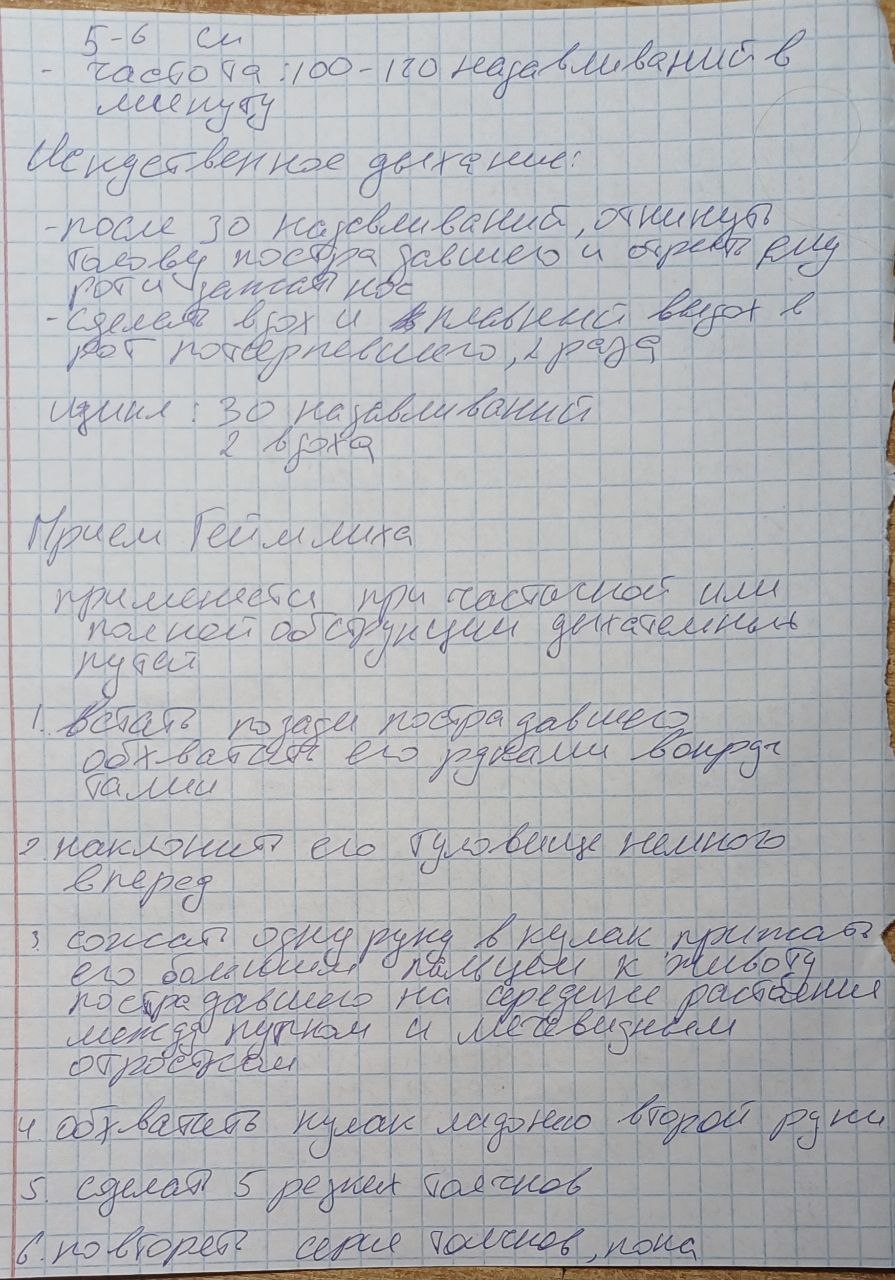 5-6 см
- частота: 100-120 надавливаний в
минуту
Искуственное дыхание:
- после 30 надавливаний, откинуть
голову пострадавшего и открыть ему
рот и зажать нос
- сделать вдох и плавный выдох в
рот потерпевшего, 2 раза
цикл: 30 надавливаний
2 вдоха
Прием Геймлиха
применяется при частичной или
полной обструкции дыхательных
путей
1. встать позади пострадавшего
обхватить его руками вокруг
талии
2. наклонить его туловище немного
вперед
3. сжать одну руку в кулак прижать
его большим пальцем к животу
пострадавшего на середине растояния
между пупком и мечевидным
отростком
4. обхватить кулак ладонью второй руки
5. сделать 5 резких толчков
6. повтореть серие толчков, пока